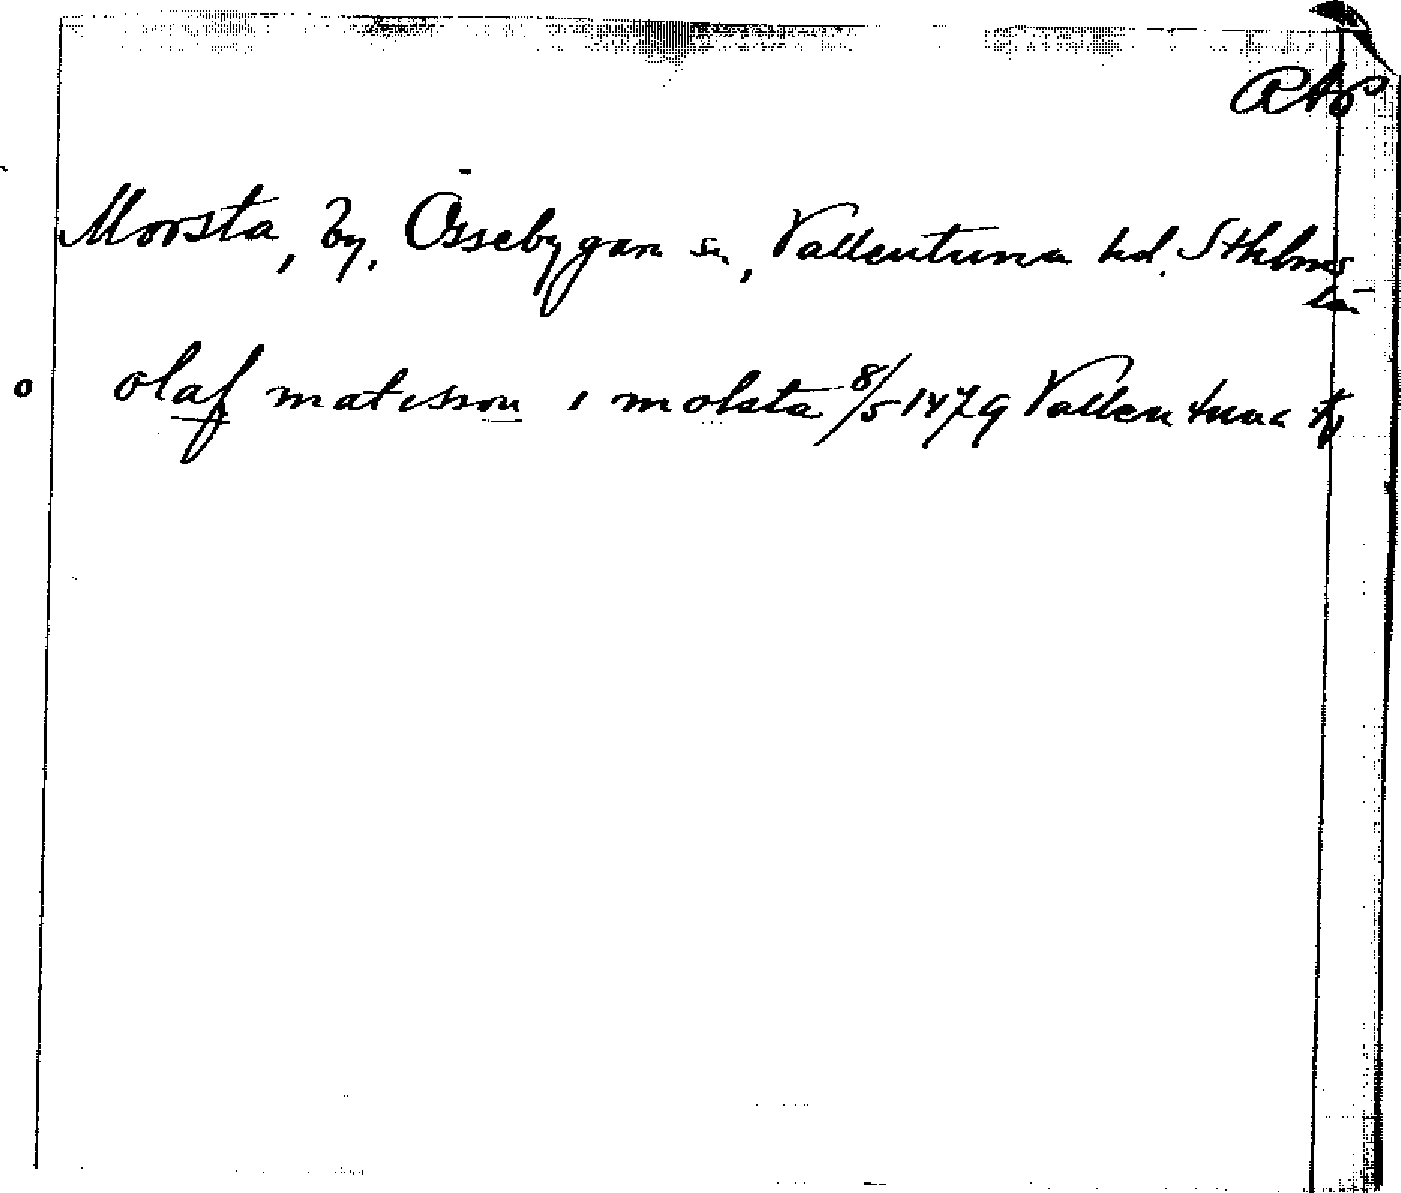 RAp
Morsta, by, Össebygarn sn, Vallentuna hd. Sthlms
lä
olaf matisson i molsta 8/5 1479 Vallentuna